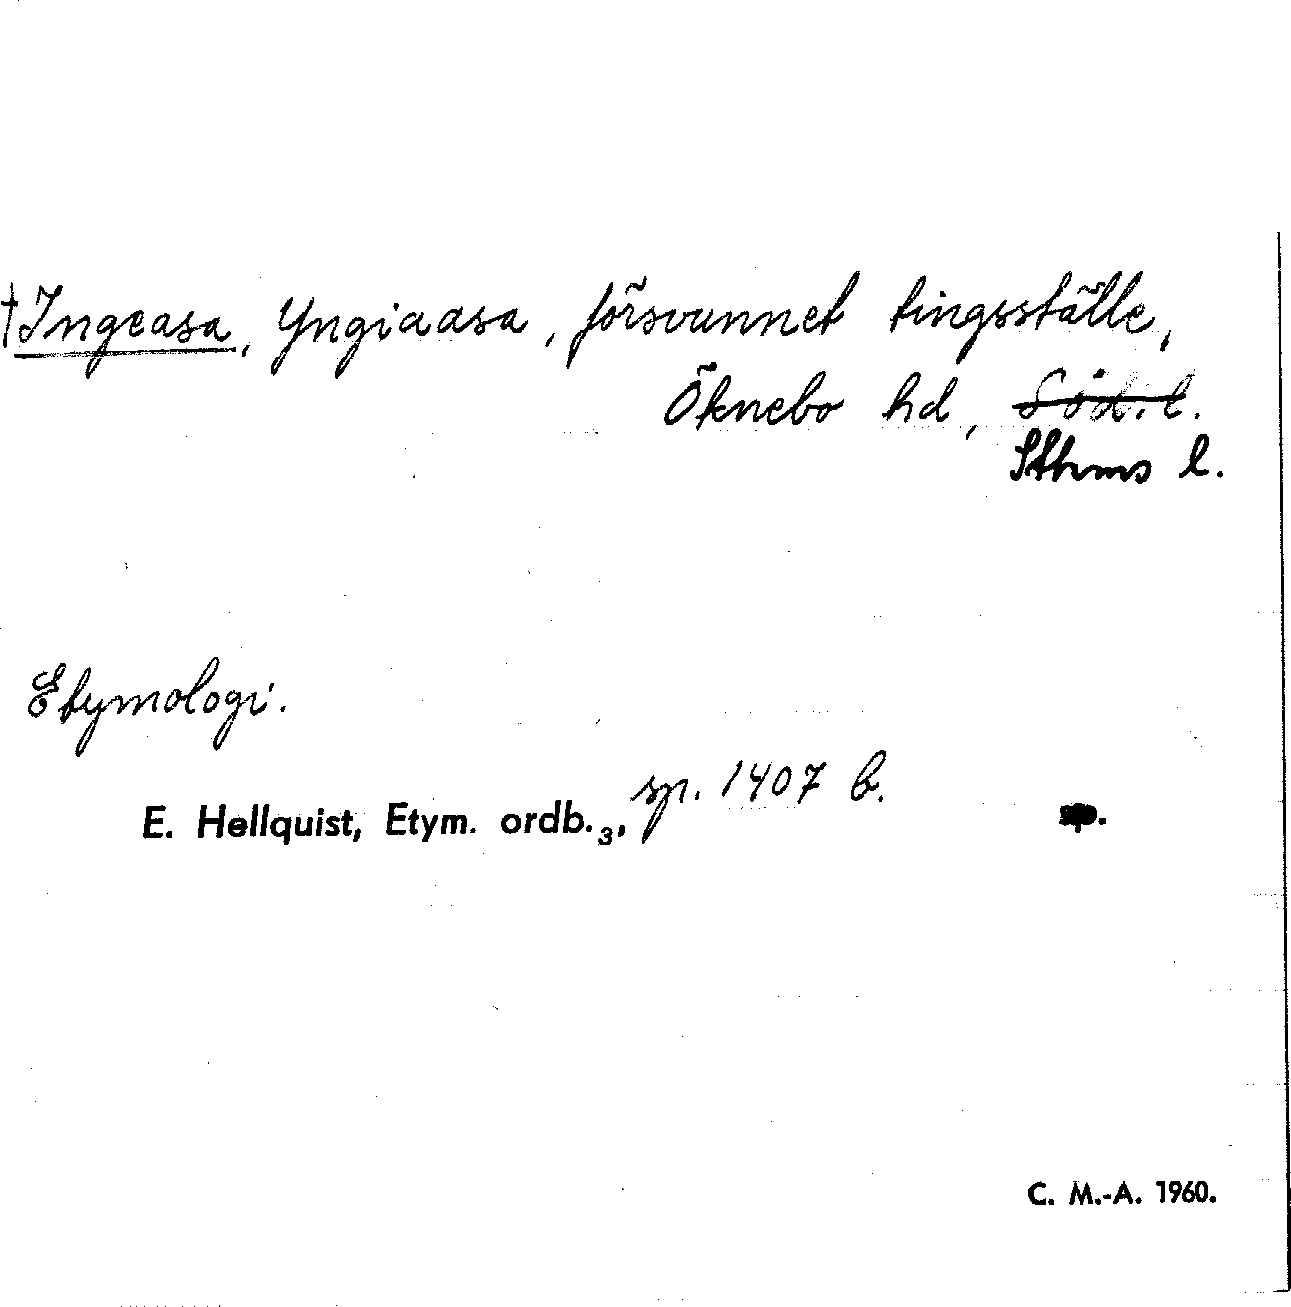 †Ingeasa, Yngiaasa, försvunnet tingsställe,
Öknebo hd, Söd. l.
Sthms l.
Etymologi.
E. Hellquist, Etym. ordb.3, sp. 1407 b.
sp.
C. M.-A. 1960.